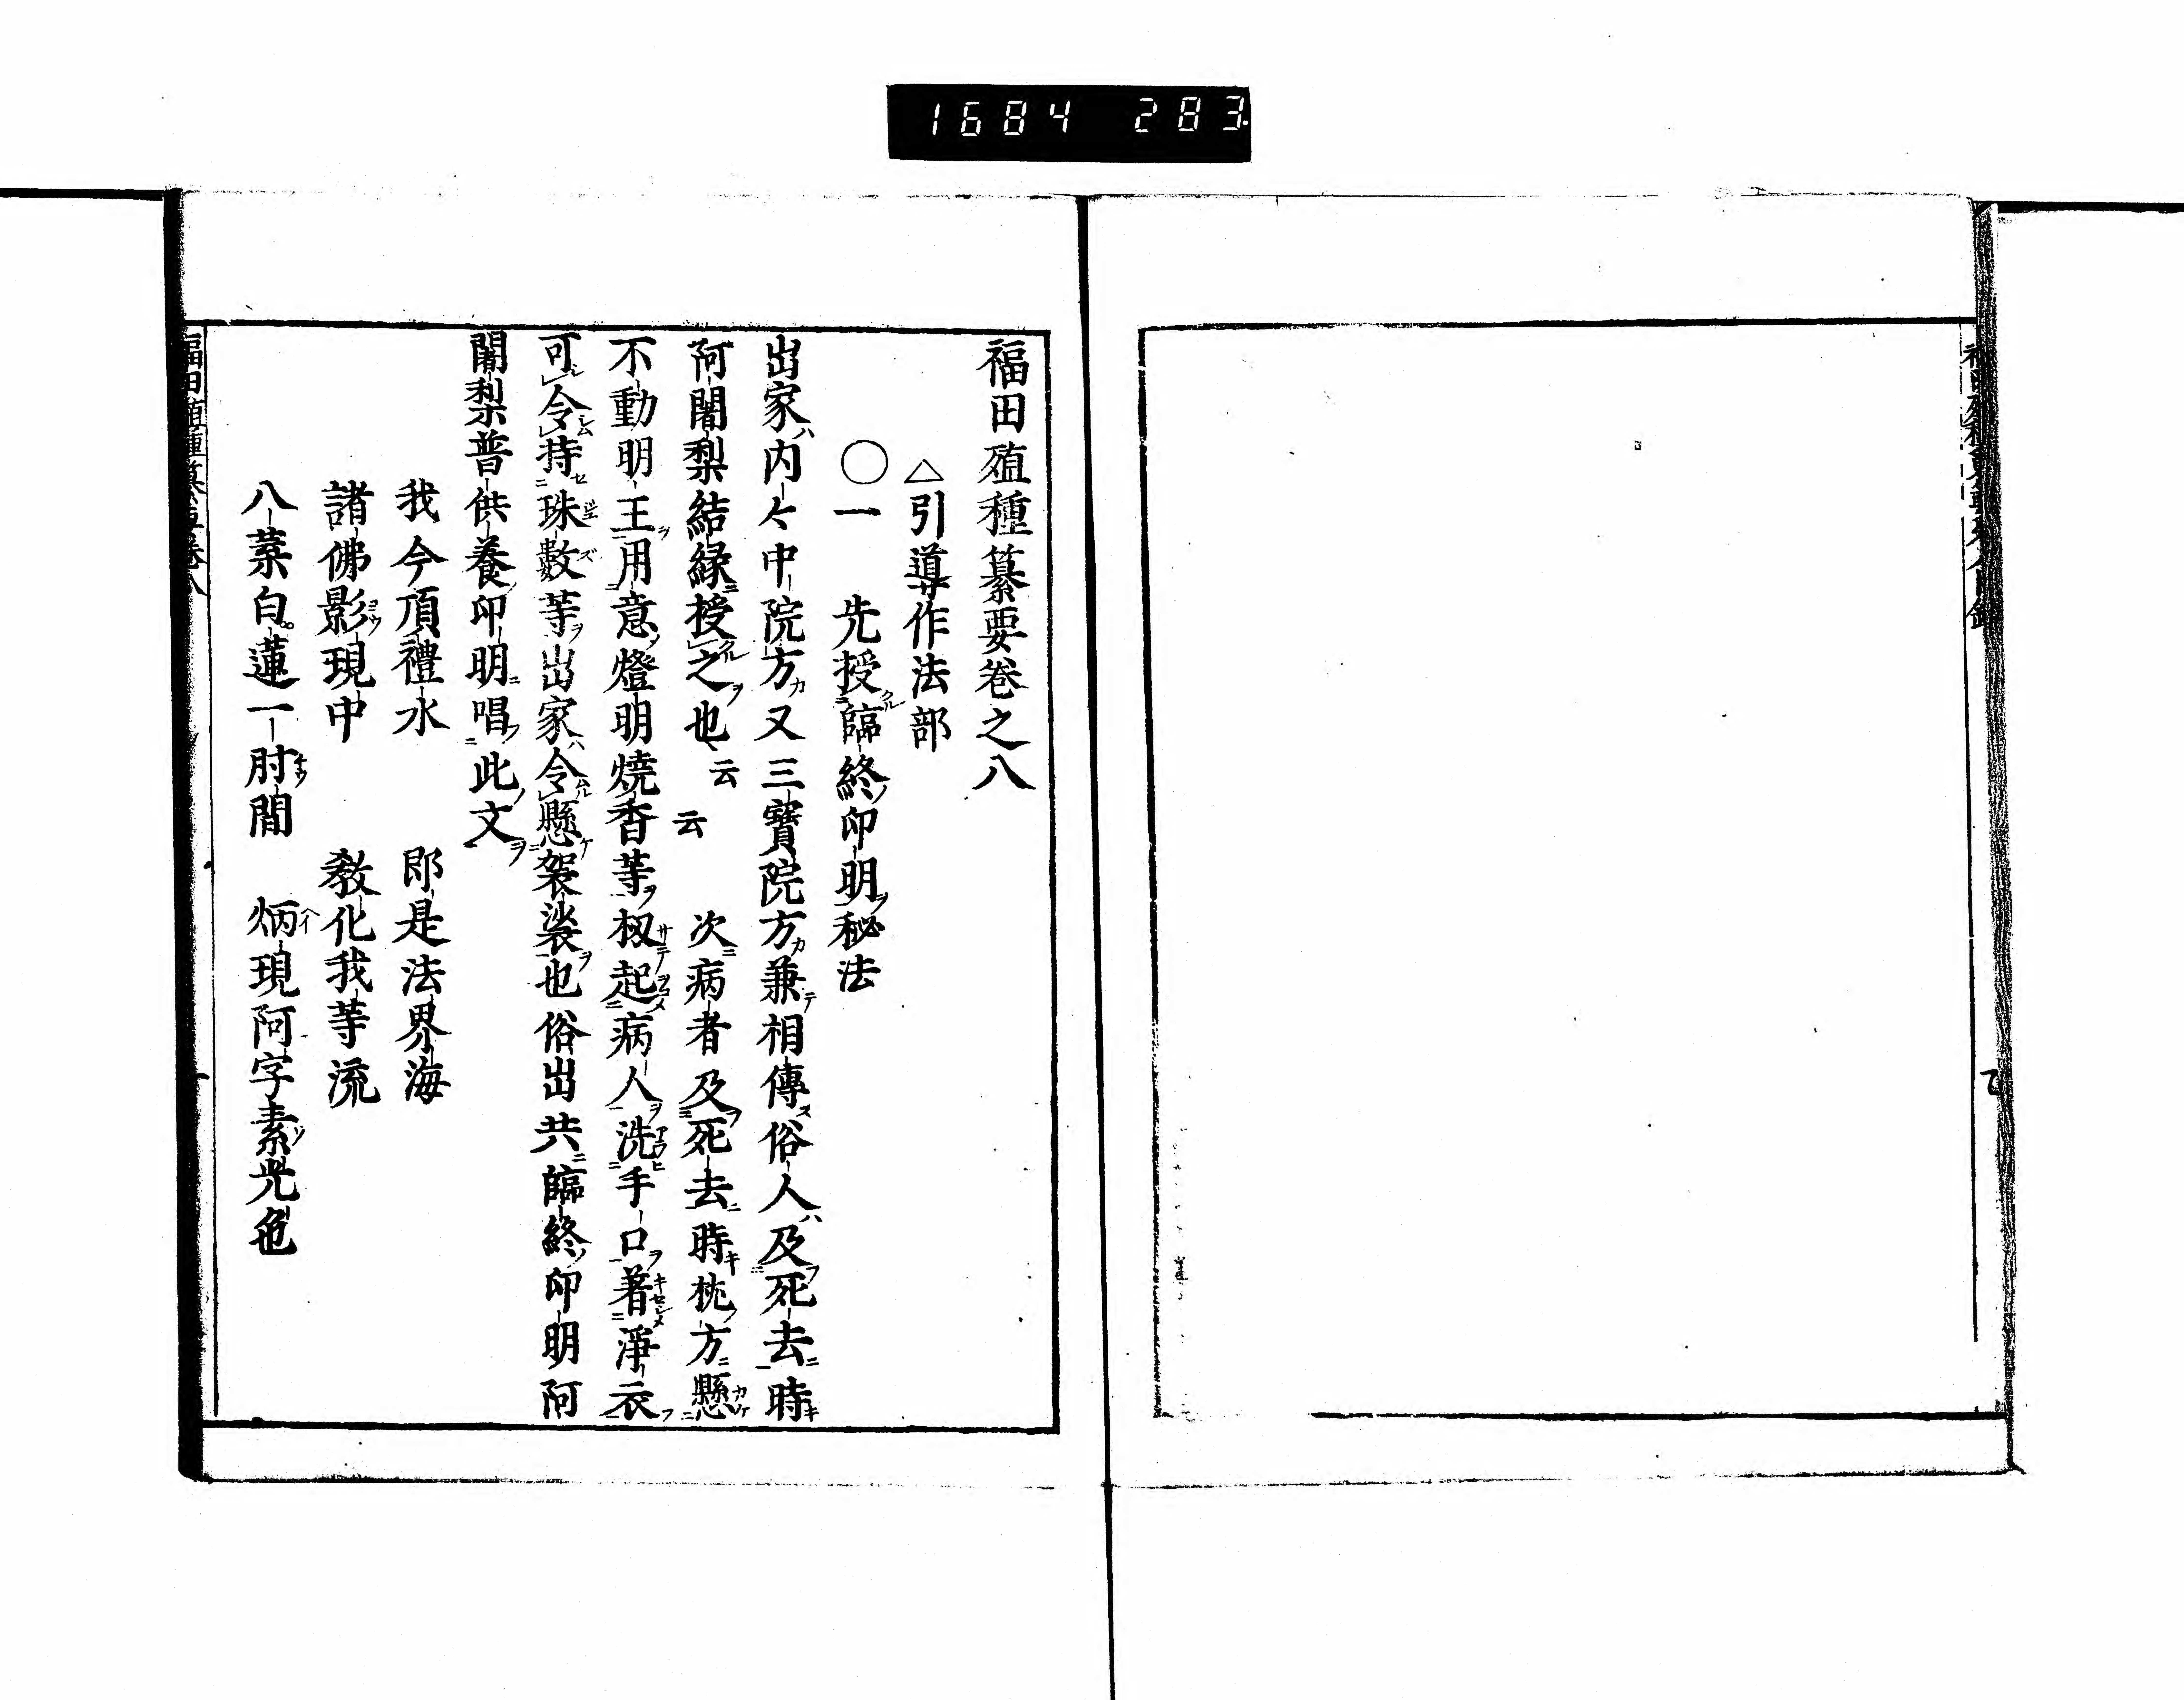 1684 283
福田殖種纂要卷之八
△引導作法部
○一 先授臨終印明秘法
出家内々中院方又三寶院方兼相傳俗人及死去時
阿闍梨結緣授之也云云 次病者及死去時枕方懸
不動明王用意燈明燒香等扨起病人洗手口著淨衣
可令持珠數等出家令懸袈裟也俗出共臨終印明阿
闍梨普供養印明唱此文
我今頂禮水 即是法界海
諸佛影現中 教化我等流
八葉白蓮一肘間 炳現阿字素光色
福田殖種纂要卷八